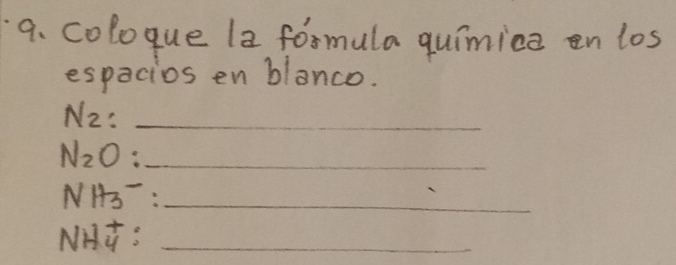 9. Coloque la fórmula química en los
espacios en blanco.
N2: ____________________
N2O: ____________________
NH3⁻: ____________________
NH4⁺: ____________________